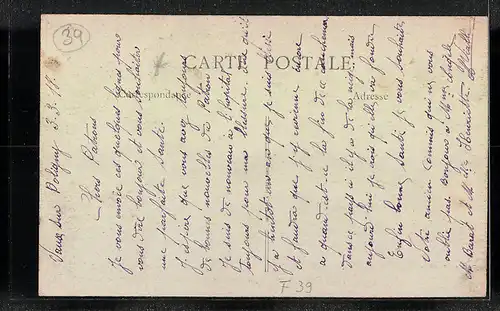 39
CARTE POSTALE
Correspondance
Adresse
Vaux sur Poligny 3.3.18.
Chers Patrons
Je vous envoie ces quelques lignes pour
vous dire bonjour et vous souhaiter
une parfaite santé.
J'espère que vous avez toujours
de bonnes nouvelles de Patron
Je suis de nouveau à l'hôpital
toujours pour ma blessure. Dire qu'il
y a bientôt un an que je suis
et faudra que j'y revienne encore
a quand est-ce la fin de ce cauchemar
Dans ce pays il y a de la neige mais
aujourd'hui je crois qu'elle va fondre
Enfin bonne santé je vous souhaite
Votre ancien commis qui ne vous
oublie pas. Bonjour à Mme
et M. et Mme Henriette
F 39